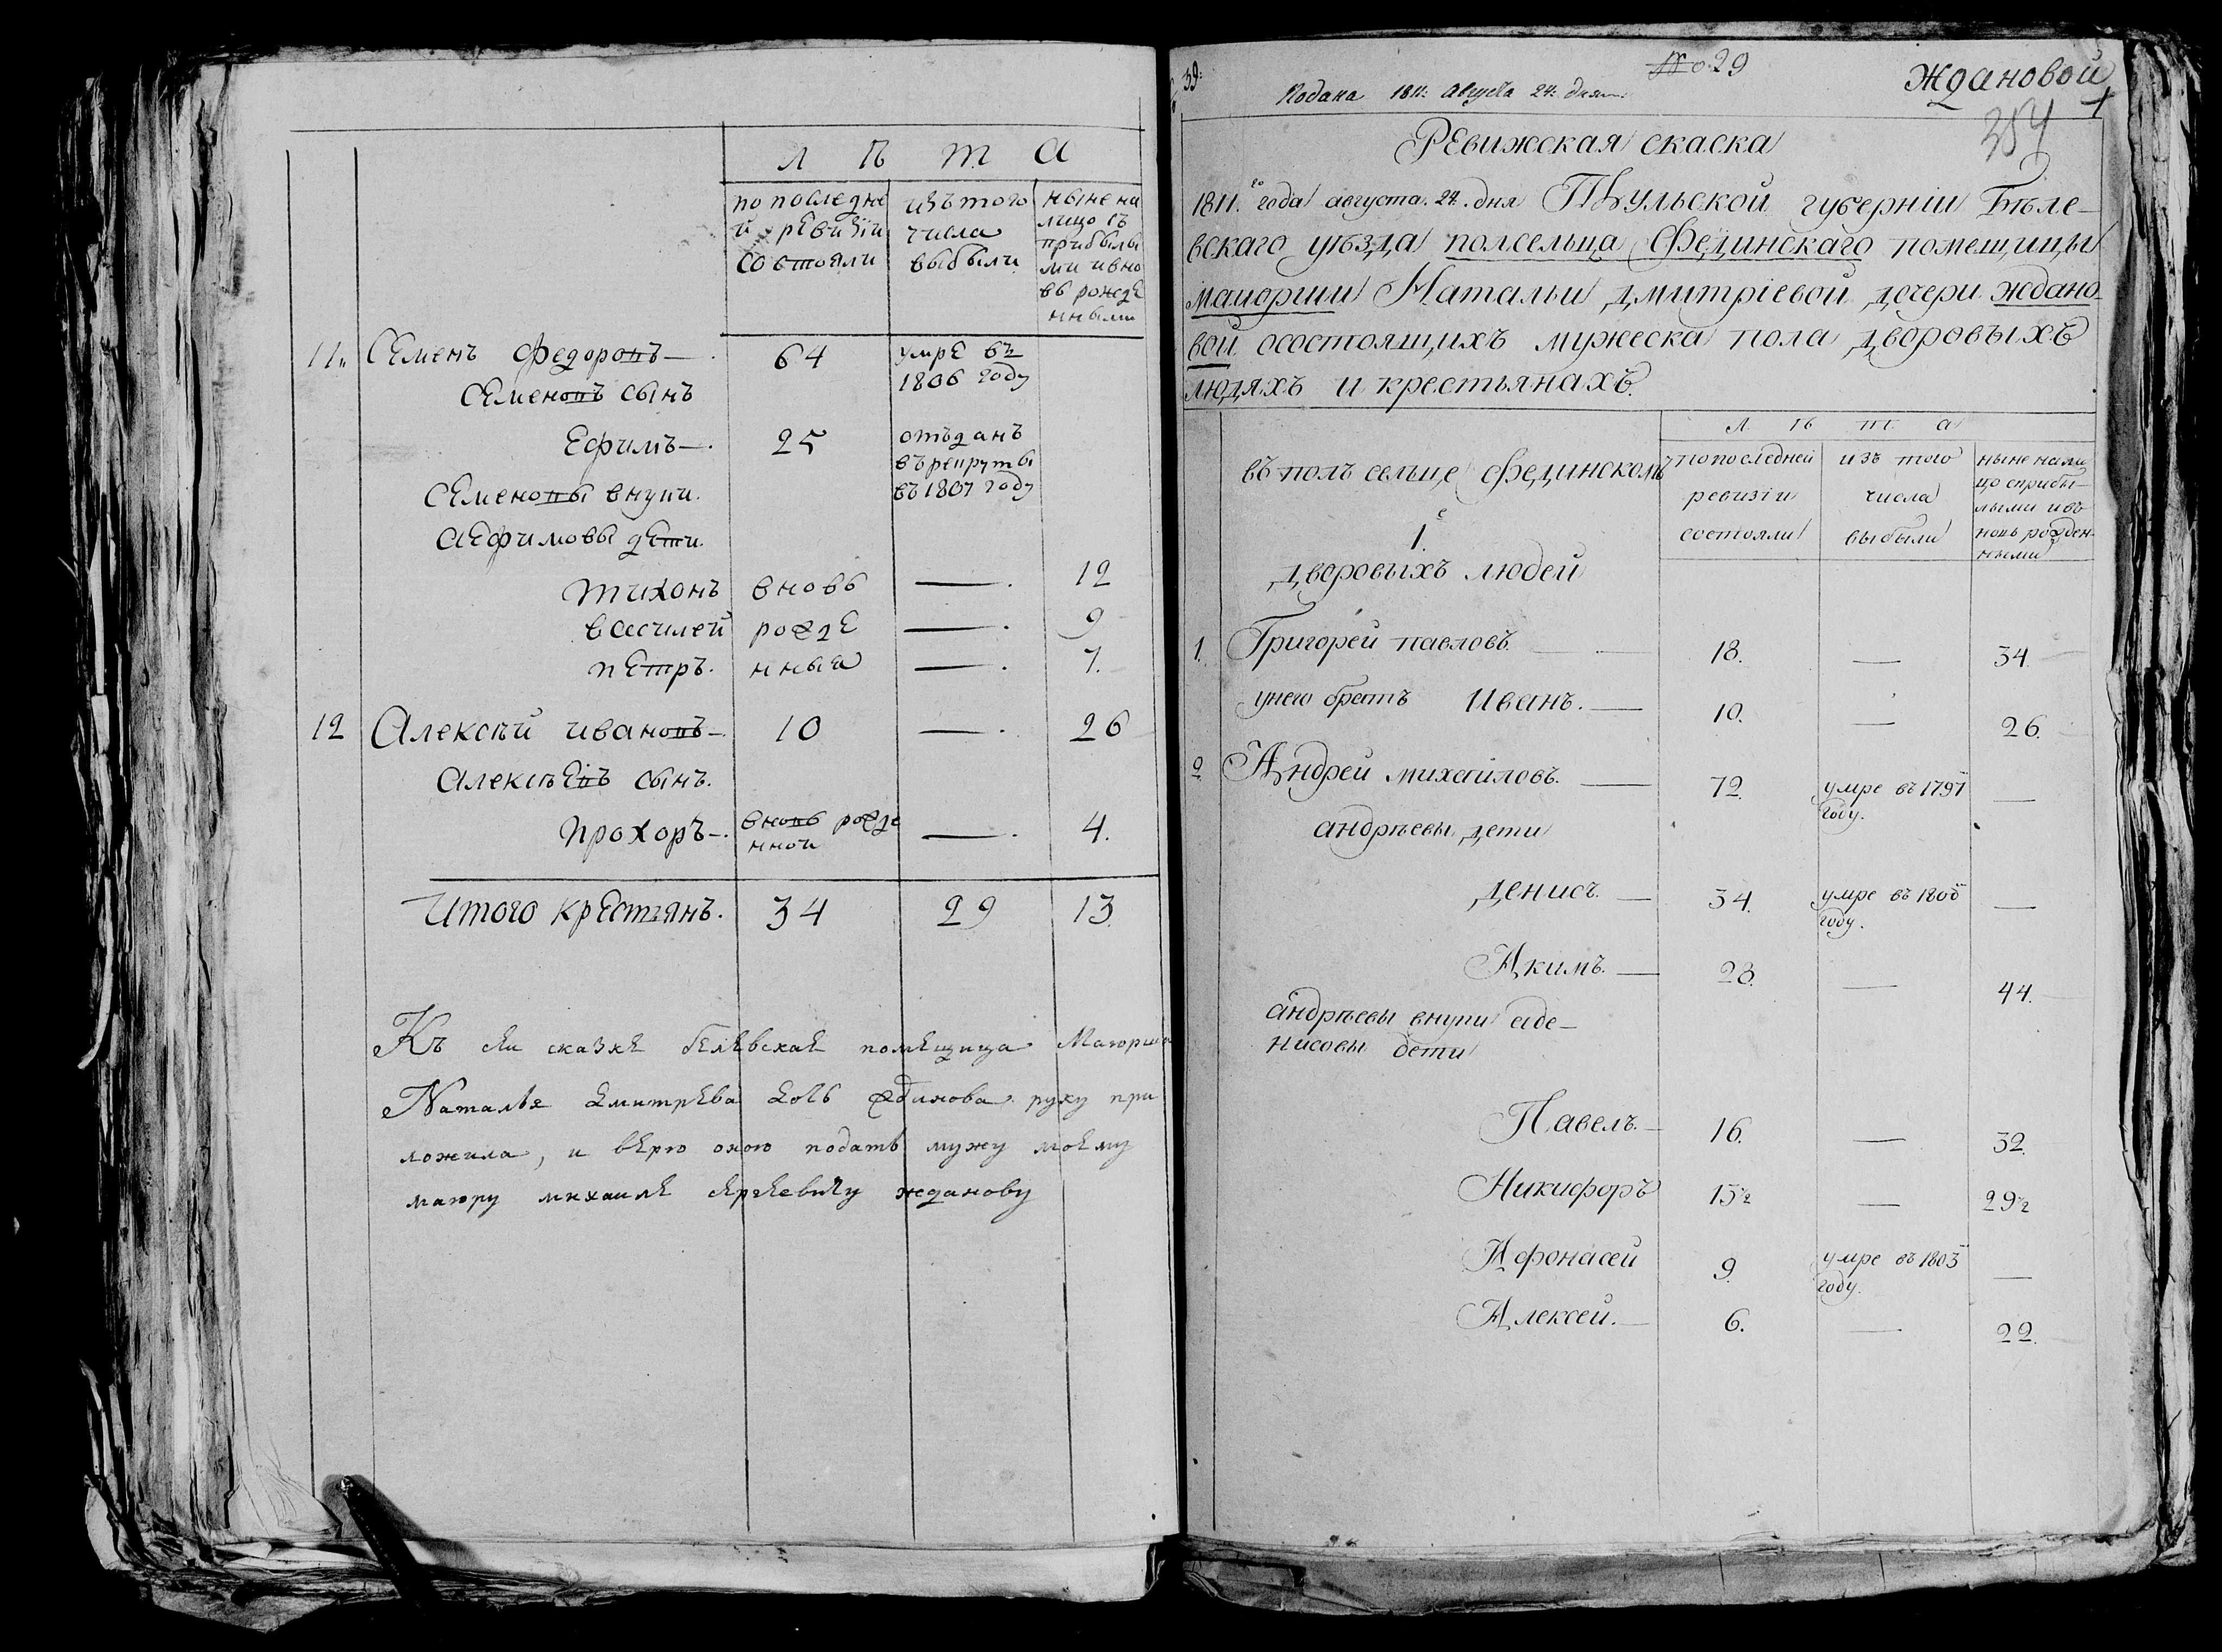 л ѣ т а
по последне
й ревизіи
состояли
изъ того
числа
выбыли
ныне на
лицо съ
прибылы
ми ивно
вь рожде
нными
11. Семенъ федоровъ 64 умре въ
1806 году
Семеновъ сынъ
Ефимъ 25 отъданъ
въ рекруты
въ 1807 году
Семеновы внуки
аефимовы дети
тихонъ вновь 12
василей рожде 9
петръ. нныя 7.
12 Алексѣй ивановъ 10 26
алексѣевъ сынъ.
прохоръ вновь рожде
нной 4.
Итого крестьянъ. 34 29 13.
Къ сеи сказке белевская помещица Маіорша
Наталья дмитрева дочь жданова руку при
ложила, и верю оною подать мужу моему
маіору михаиле сергеевичу жданову
39:
№ 29
Ждановой
Подана 1811: августа 24: дня
354
Ревижская скаска
1811.го года августа. 24. дня Тульской губерніи Бѣле-
вскаго уѣзда полсельца Фединскаго помещицы
маиорши Натальи дмитріевой дочери ждано
вой осостоящихъ мужеска пола дворовыхъ
людяхъ и крестьянахъ.
л ѣ т а
въ полъ сельце Фединскомъ
попоследней
ревизіи
состояли
изъ того
числа
выбыли
ныне нали
цо сприбы-
лыми ивъ
новь рожден-
ными
1.е
дворовыхъ людей
1. Григорей павловъ. 18. 34.
унего братъ Иванъ. 10. 26.
2 Андрей михайловъ. 72. умре въ 1797
году.
андрѣевы дети
Денисъ. 34. умре въ 1800
году.
Акимъ. 28. 44.
андрѣевы внуки аде-
нисовы дети
Павелъ. 16. 32.
Никифоръ 13½ 29½
Афонасей 9. умре въ 1803
году.
Алексей. 6. 22.